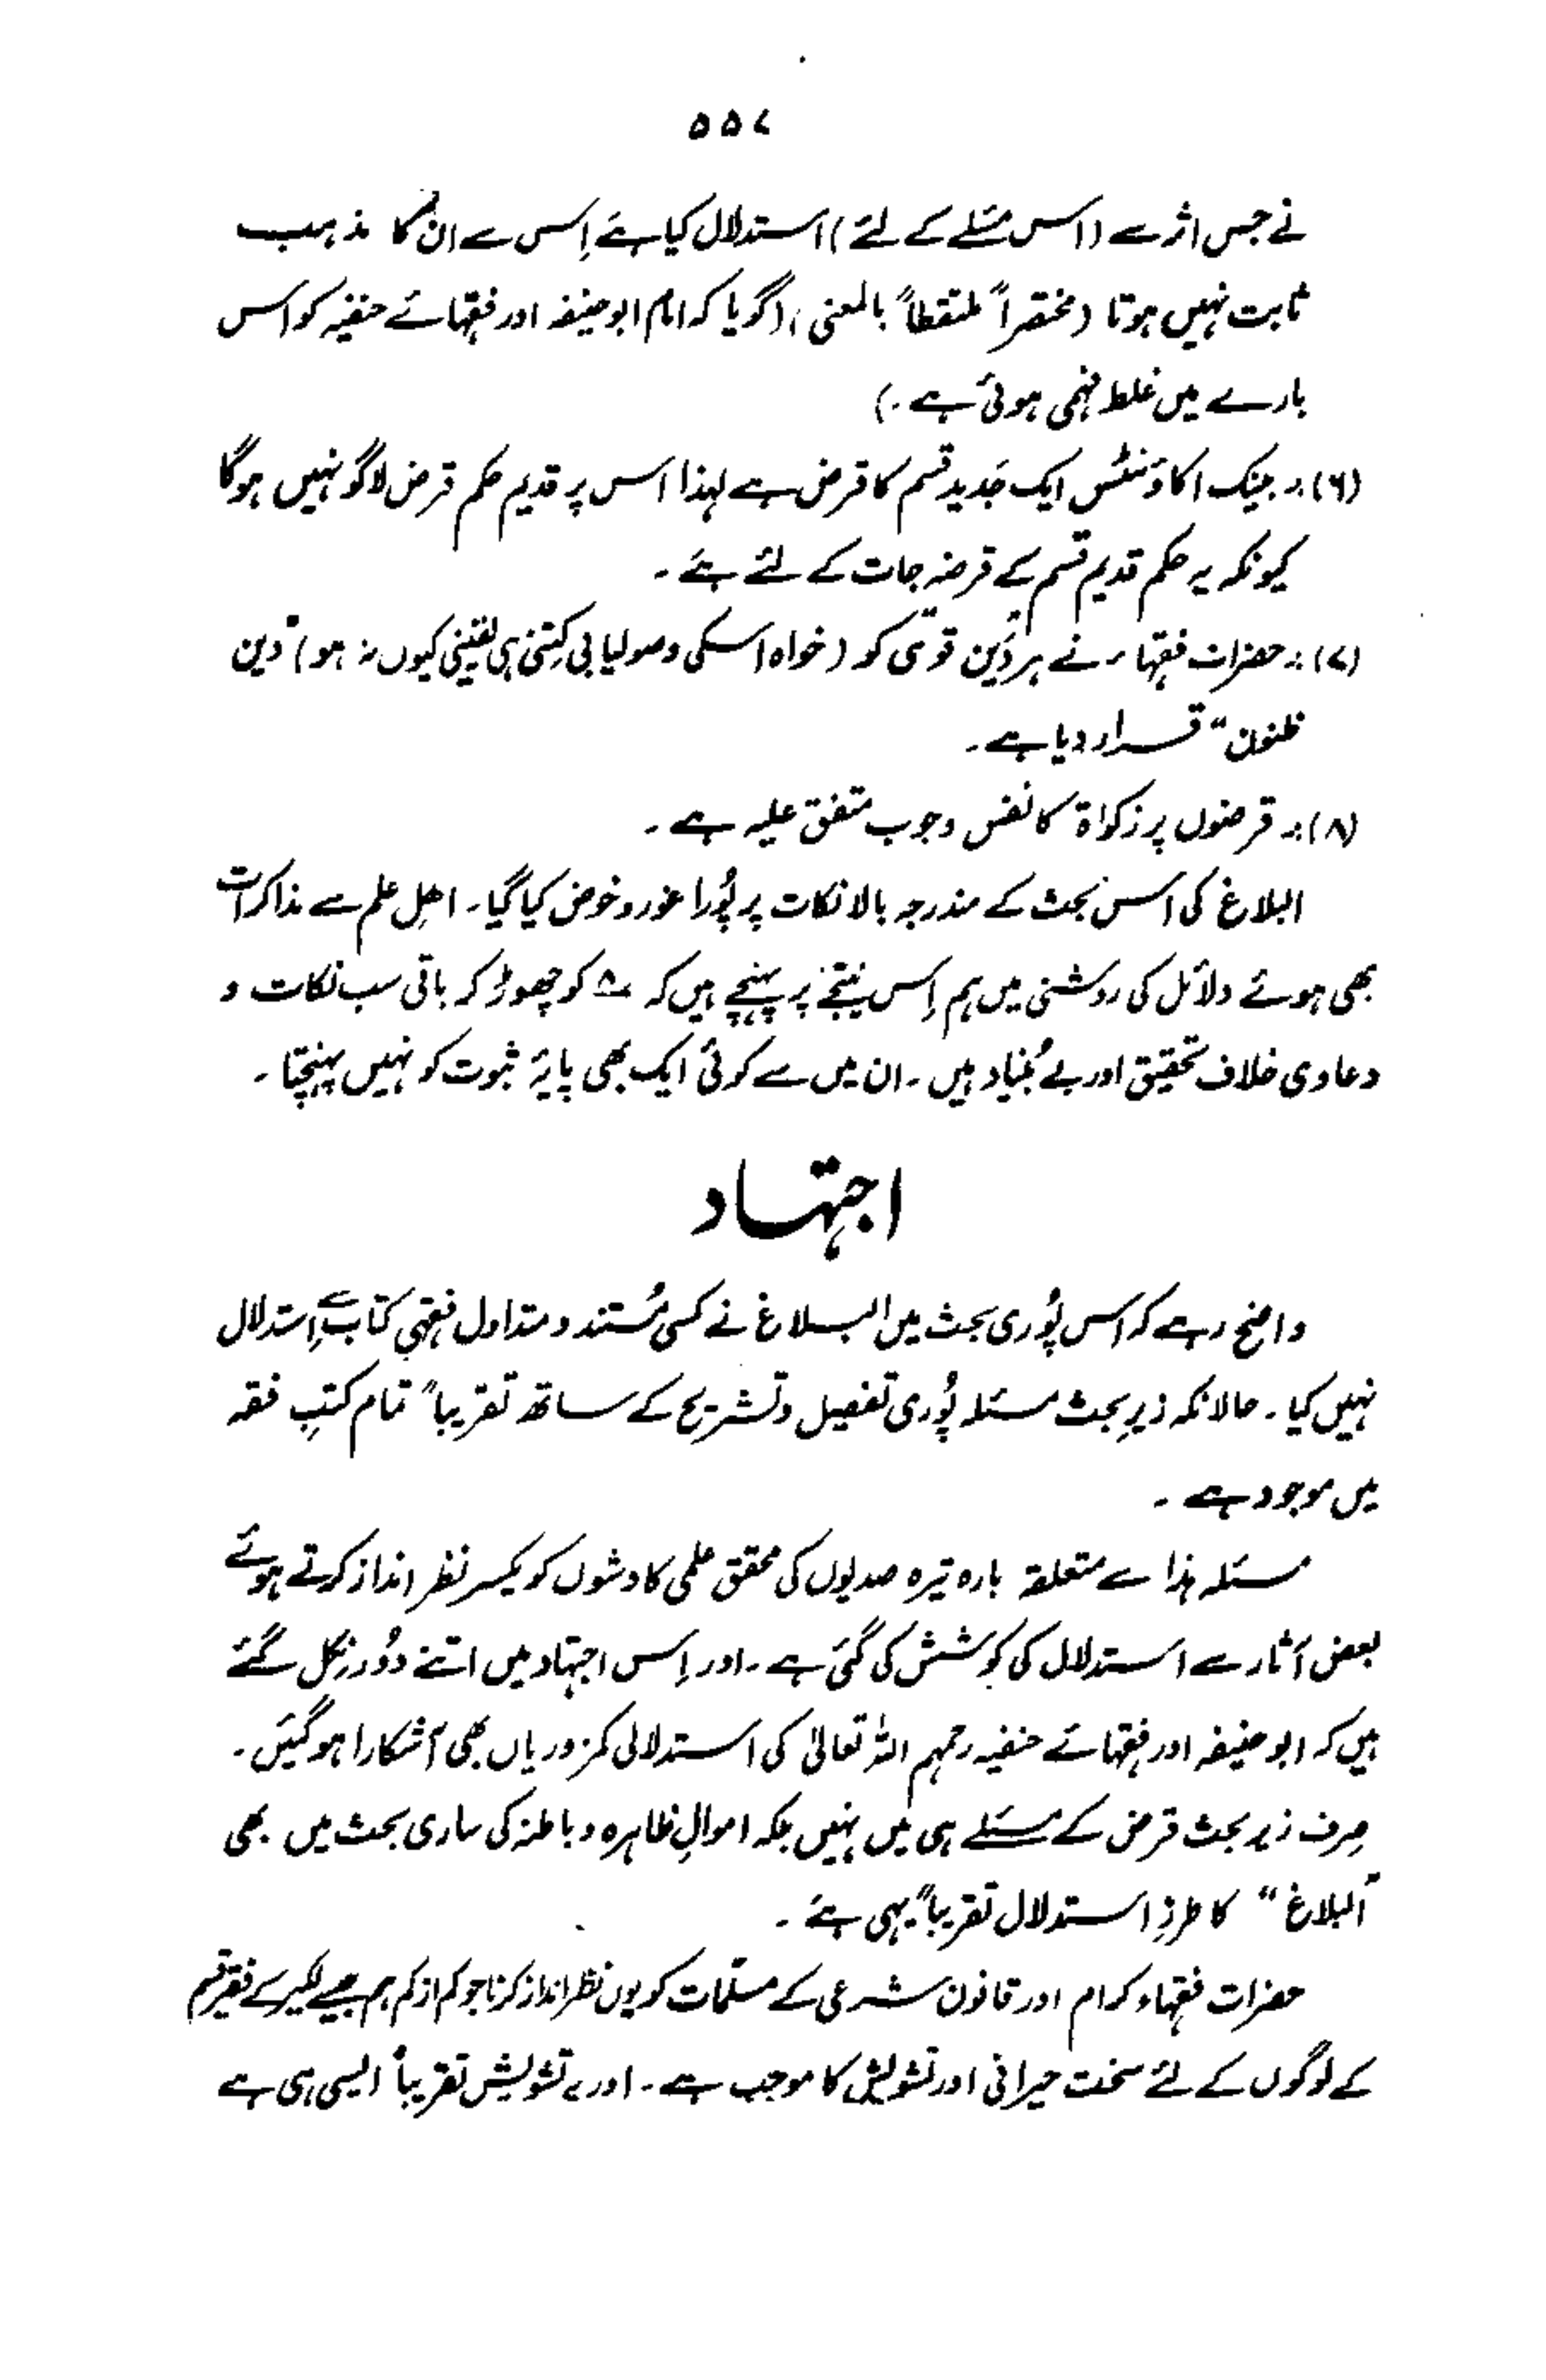 ۵۵۷
نے جس اثر سے (اس مسئلے کے لئے) استدلال کیا ہے اِس سے ان کا مذہب
ثابت نہیں ہوتا (مختصراً ملتقطاً بالمعنی، (گویا کہ امام ابوحنیفہ اور فقہائے حنفیہ کو اس
بارے میں غلط فہمی ہوئی ہے۔)
(۶)؛۔ بینک اکاؤنٹس ایک جدید قسم کا قرض ہے لہذا اس پر قدیم حکم قرض لاگو نہیں ہوگا
کیونکہ یہ حکم قدیم قسم کے قرضہ جات کے لئے ہے۔
(۷)؛۔ حضرات فقہاء نے ہر دَین قوی کو (خواہ اسکی وصولیابی کتنی ہی یقینی کیوں نہ ہو) "دین
ظنون" قرار دیا ہے۔
(۸)؛۔ قرضوں پر زکواۃ کا نفس وجوب متفق علیہ ہے۔
البلاغ کی اس بحث کے مندرجہ بالا نکات پر پُورا غور و خوض کیا گیا۔ اھلِ علم سے مذاکرات
بھی ہوئے دلائل کی روشنی میں ہم اِس نتیجے پر پہنچے ہیں کہ ۸ کو چھوڑ کر باقی سب نکات و
دعاوی خلاف تحقیق اور بے بُنیاد ہیں۔ ان میں سے کوئی ایک بھی پایۂ ثبوت کو نہیں پہنچتا۔
اجتہاد
واضح رہے کہ اس پُوری بحث میں البلاغ نے کسی مُستند و متداول فقہی کتاب سے اِستدلال
نہیں کیا۔ حالانکہ زیرِ بحث مسئلہ پُوری تفصیل و تشریح کے ساتھ تقریباً تمام کتبِ فقہ
میں موجود ہے۔
مسئلہ ہذا سے متعلقہ بارہ تیرہ صدیوں کی محقق علمی کاوشوں کو یکسر نظر انداز کرتے ہوئے
بعض آثار سے استدلال کی کوشش کی گئی ہے۔ اور اِس اجتہاد میں اتنے دُور نِکل گئے
ہیں کہ ابوحنیفہ اور فقہائے حنفیہ رحمہم اللہ تعالیٰ کی استدلالی کمزوریاں بھی آشکارا ہوگئیں۔
صِرف زیر بحث قرض کے مسئلے ہی میں نہیں بلکہ اموالِ ظاہرہ و باطنہ کی ساری بحث میں بھی
"البلاغ" کا طرزِ استدلال تقریباً یہی ہے۔
حضرات فقہاء کرام اور قانون شرعی کے مسلّمات کو یوں نظر انداز کرنا جو کم از کم ہم جیسے لکیر کے فقیر قسم
کے لوگوں کے لئے سخت حیرانی اور تشویش کا موجب ہے۔ اور یہ تشویش تقریباً ایسی ہی ہے